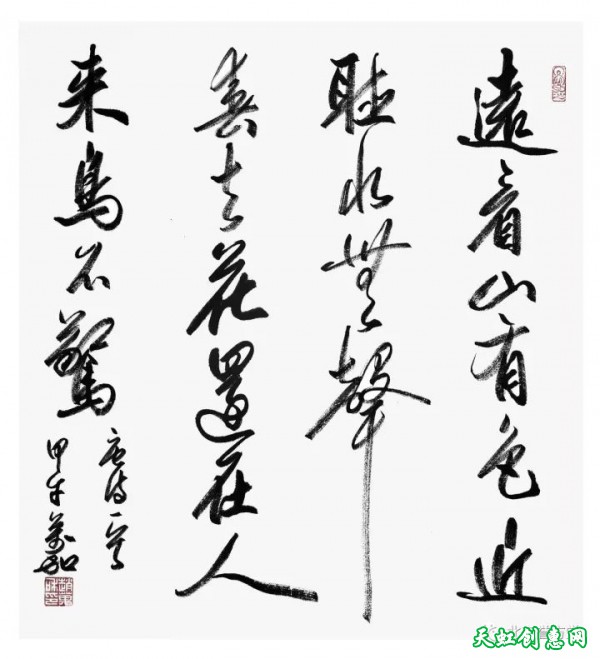 遠看山有色近
聴水無聲
春去花還在人
来鳥不驚
唐诗一首
甲午
天虹创惠网